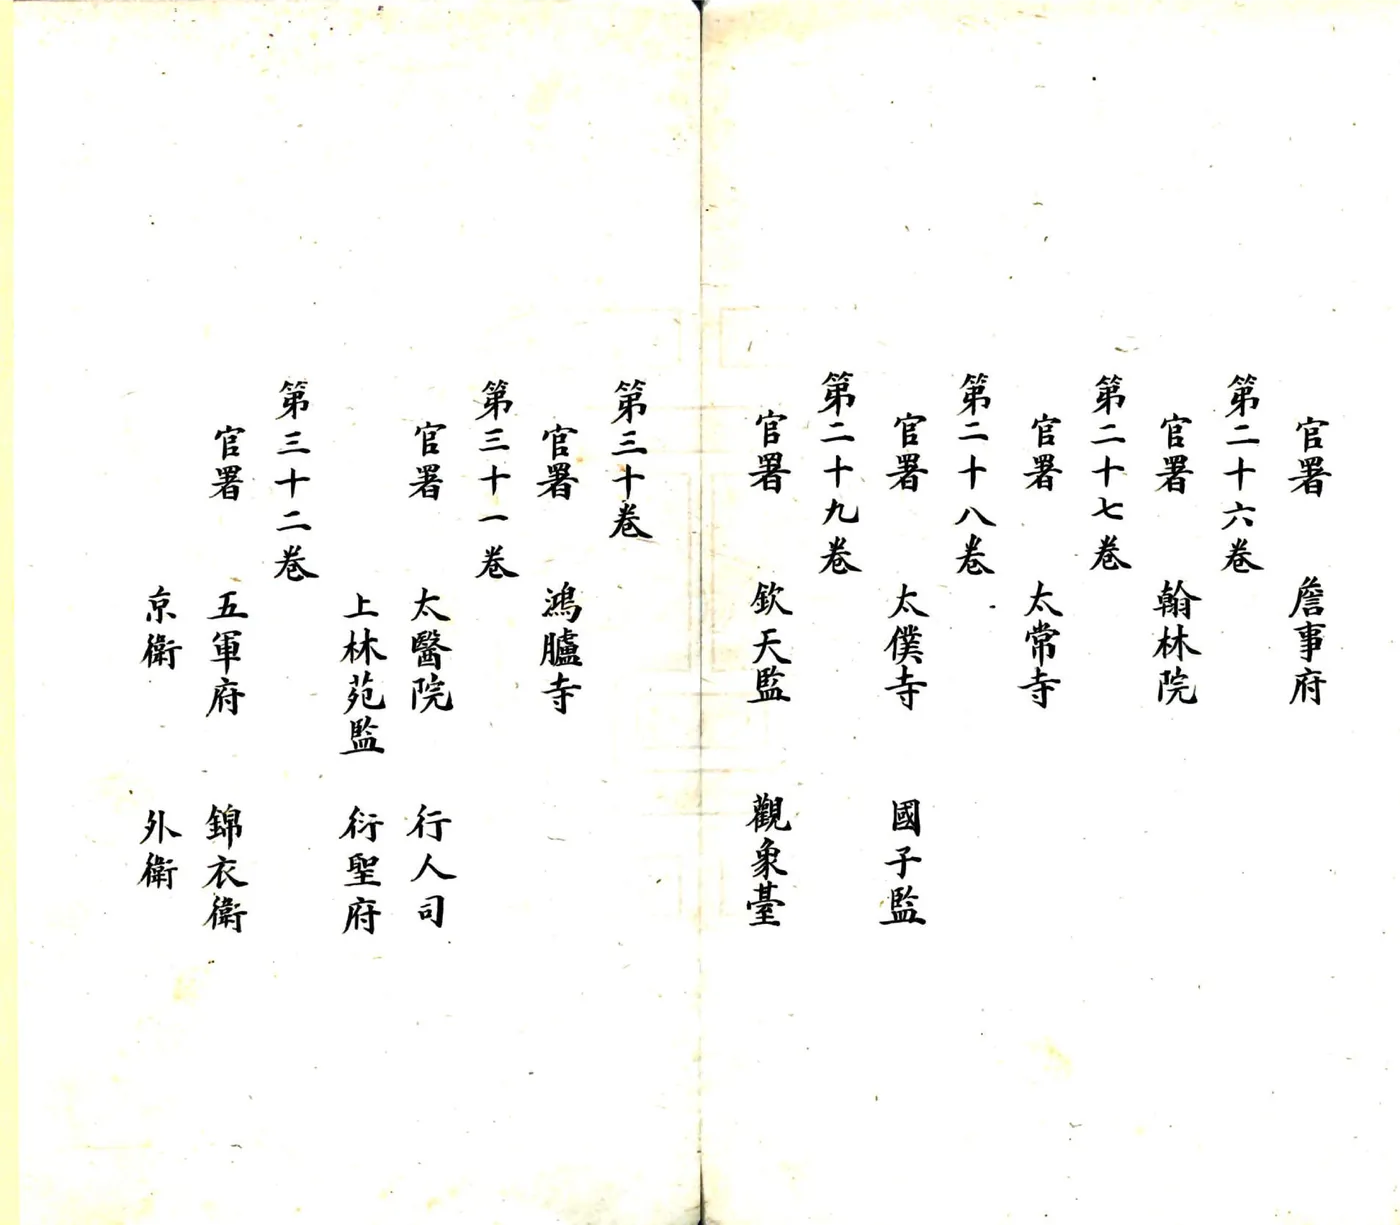 官署　詹事府
第二十六卷
官署　翰林院
第二十七卷
官署　太常寺
第二十八卷
官署　太僕寺　國子監
第二十九卷
官署　欽天監　觀象臺
第三十卷
官署　鴻臚寺
第三十一卷
官署　太醫院　行人司
上林苑監　衍聖府
第三十二卷
官署　五軍府　錦衣衛
京衛　外衛